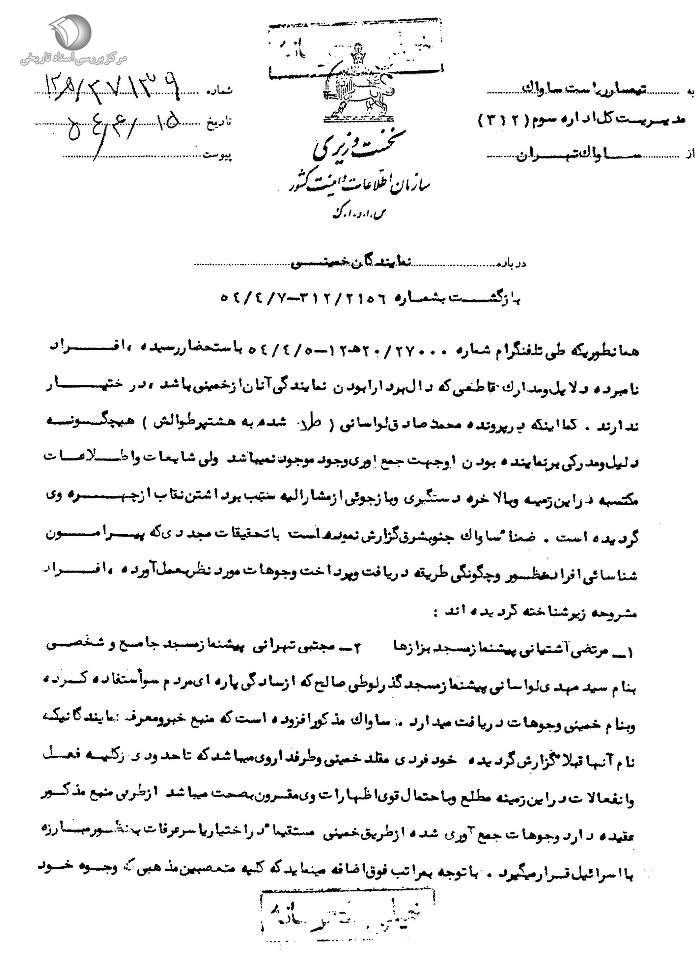 مرکز بررسی اسناد تاریخی
خیلی محرمانه
به تیمسار ریاست ساواک
مدیریت کل اداره سوم (۳۱۲)
از ساواک تهران
نخست وزیری
سازمان اطلاعات و امنیت کشور
س.ا.و.ا.ک
شماره ۳۷۱۳۹/
تاریخ ۱۵/۴/۵۴
پیوست
درباره نمایندگان خمینی
بازگشت بشماره ۳۱۲/۲۱۵۶-۵۴/۴/۷
همانطوریکه طی تلفنگرام شماره ۲۰/۲۷۰۰۰ﻫ۱۲-۵۴/۴/۵ باستحضار رسیده ، افراد
نامبرده دلایل ومدارک قاطعی که دال بردارا بودن نمایندگی آنان از خمینی باشد ، در اختیار
ندارند . کما اینکه در پرونده محمد صادق لواسانی ( شده به هشتپر طوالش ) هیچگونه
دلیل ومدرکی بر نماینده بودن او جهت جمع آوری وجوه موجود نمیباشد ولی شایعات واطلاعات
مکتسبه در این زمینه وبالاخره دستگیری وبازجوئی از مشارالیه سبب برداشتن نقاب از چهره وی
گردیده است . ضمنا" ساواک جنوبشرق گزارش نموده است با تحقیقات مجددی که پیرامون
شناسائی افراد منظور وچگونگی طریقه دریافت وپرداخت وجوهات مورد نظر بعمل آورده ، افراد
مشروحه زیر شناخته گردیده اند :
۱ـ مرتضی آشتیانی پیشنماز مسجد بزازها ۲ـ مجتبی تهرانی پیشنماز مسجد جامع و شخصی
بنام سید مهدی لواسانی پیشنماز مسجد گذر لوطی صالح که از سادگی پاره ای مردم سوأستفاده کرده
وبنام خمینی وجوهات دریافت میدارد . ساواک مذکور افزوده است که منبع خبر ومعرف نمایندگانیکه
نام آنها قبلا" گزارش گردیده خود فردی مقلد خمینی وطرفدار وی میباشد که تا حدودی از کلیه فعل
وانفعالات در این زمینه مطلع وبا احتمال قوی اظهارات وی مقرون بصحت میباشد از طرفی منبع مذکور
عقیده دارد وجوهات جمع آوری شده از طریق خمینی مستقیما" در اختیار یاسر عرفات بمنظور مبارزه
با اسرائیل قرار میگیرد . با توجه بمراتب فوق اضافه مینماید که کلیه متعصبین مذهبی که وجوه خود
خیلی محرمانه